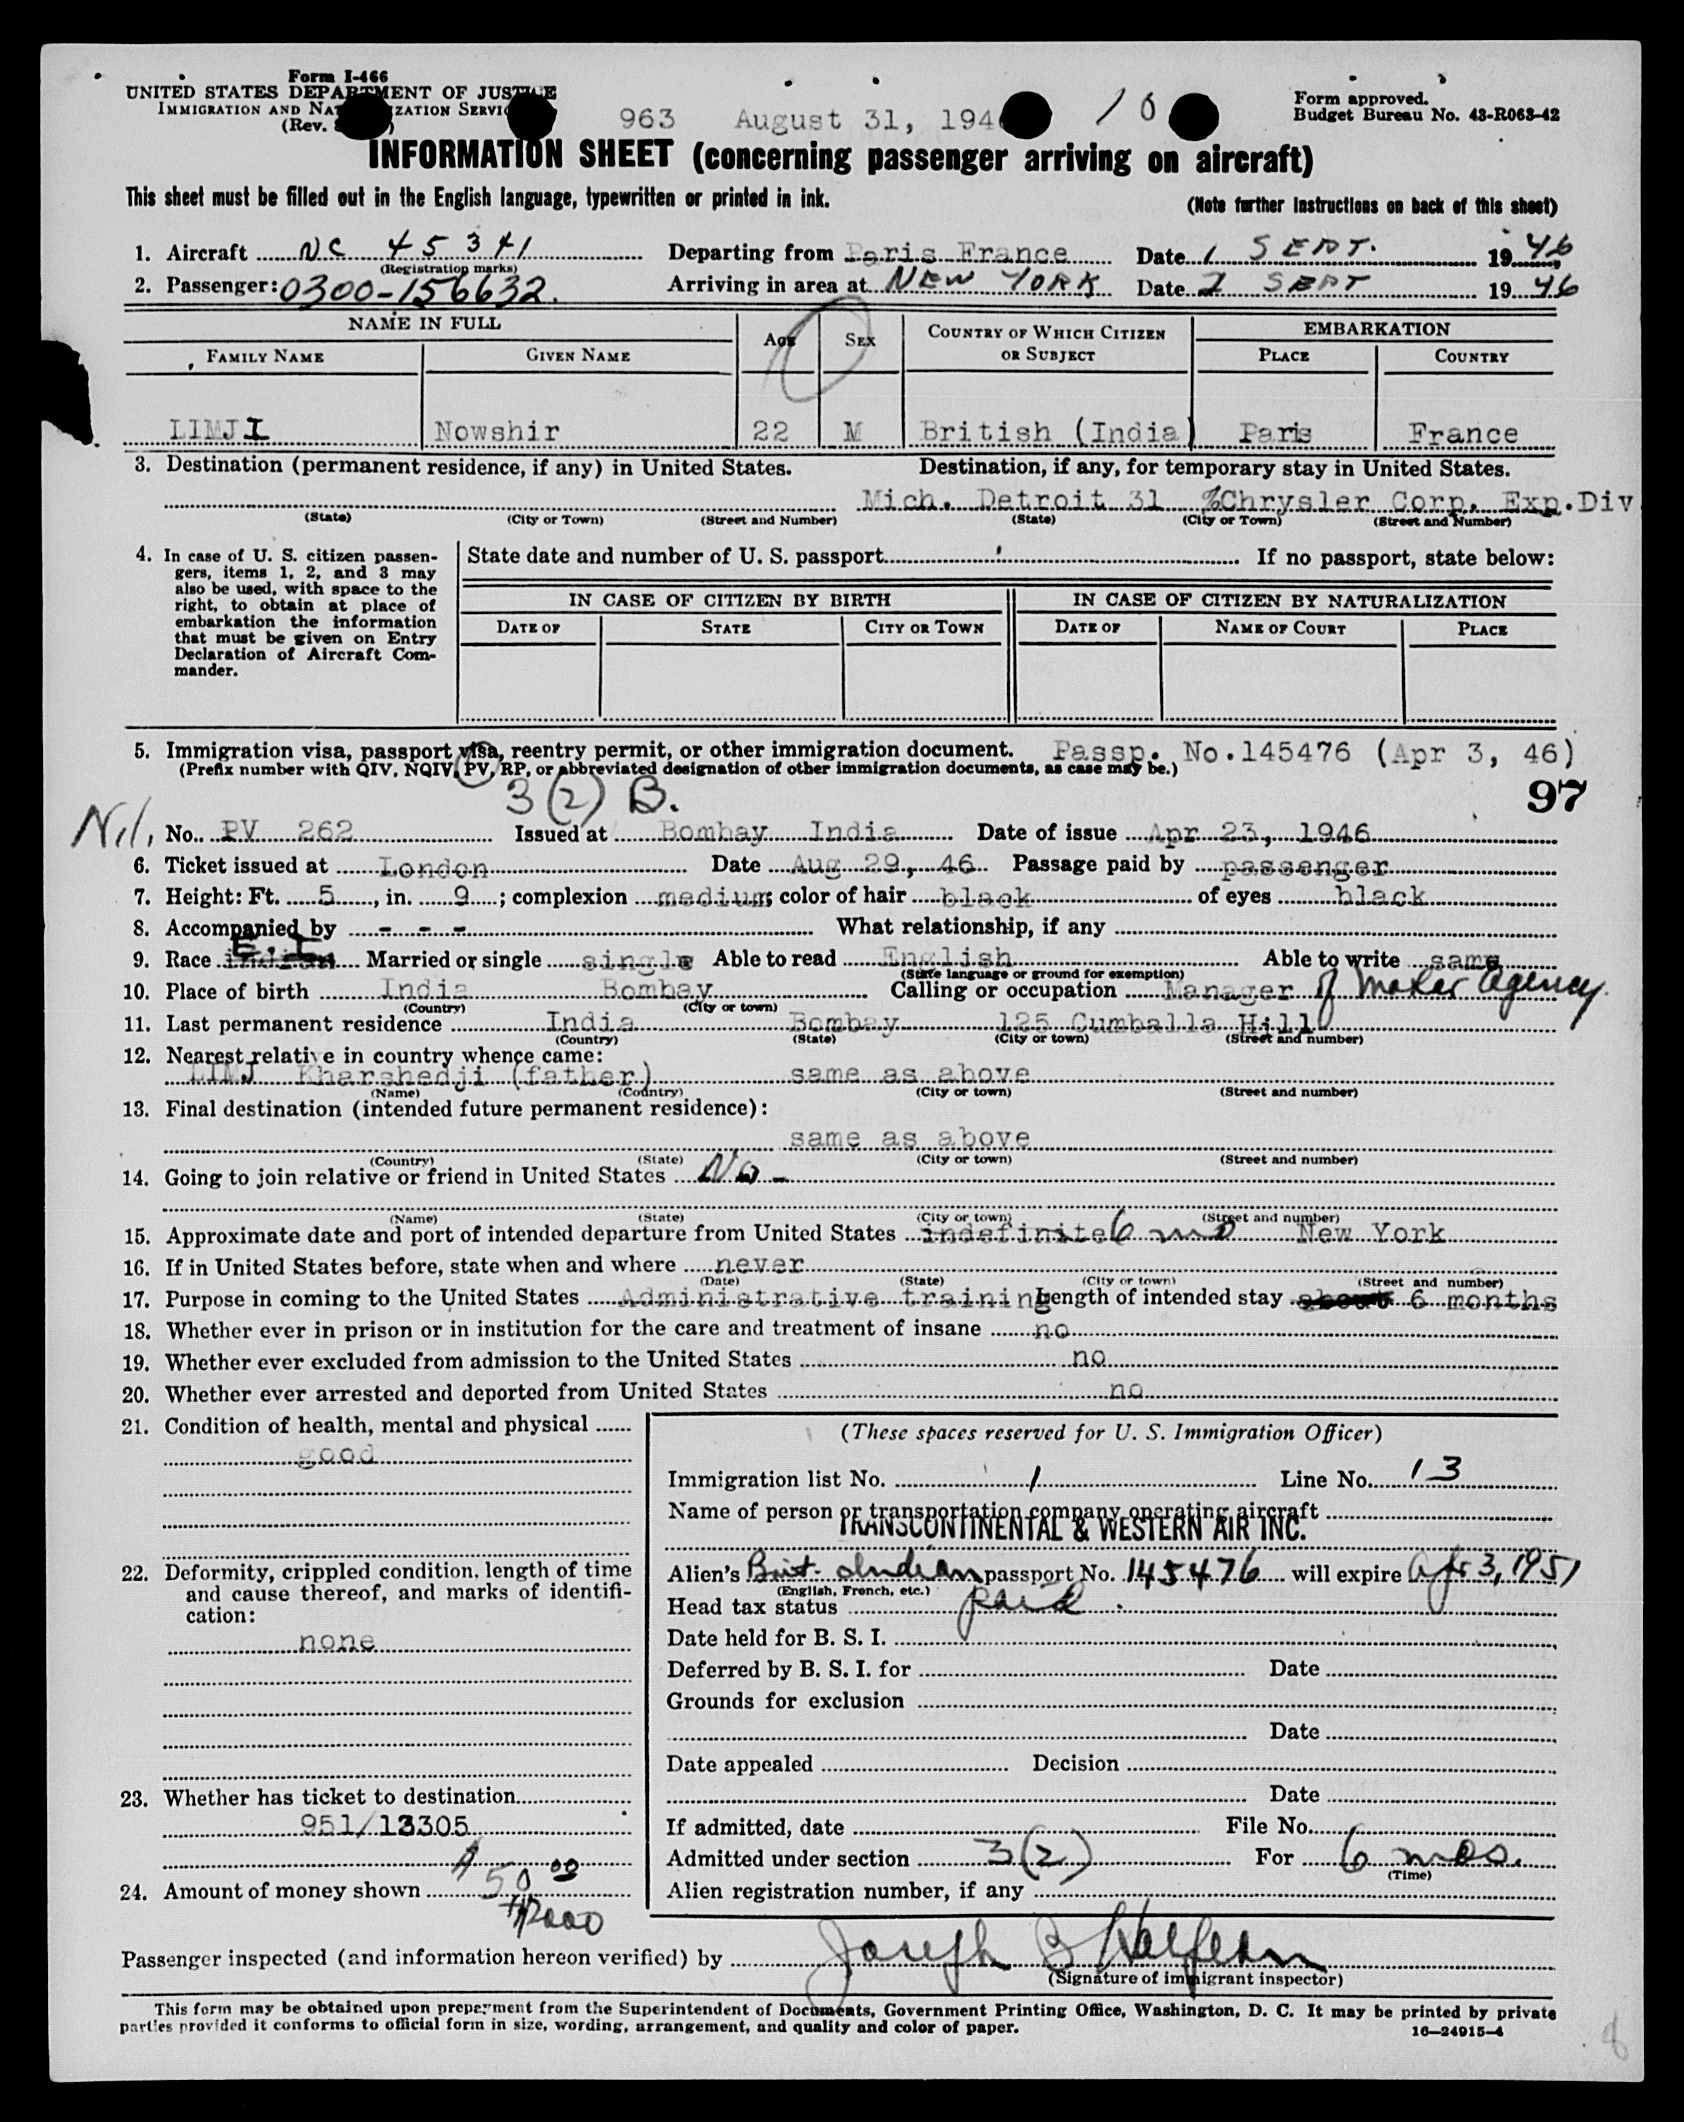 Form I-466
UNITED STATES DEPARTMENT OF JUSTICE
IMMIGRATION AND NATURALIZATION SERVICE
(Rev.
963 August 31, 194
10
Form approved.
Budget Bureau No. 43-R063-42
INFORMATION SHEET (concerning passenger arriving on aircraft)
This sheet must be filled out in the English language, typewritten or printed in ink.
(Note further instructions on back of this sheet)
1. Aircraft NC 45341 Departing from Paris France Date 1 SEPT. 1946
(Registration marks)
2. Passenger: 0300-156632. Arriving in area at NEW YORK Date 2 SEPT 1946
NAME IN FULL
FAMILY NAME GIVEN NAME AGE SEX COUNTRY OF WHICH CITIZEN OR SUBJECT EMBARKATION
PLACE COUNTRY
LIMJI Nowshir 22 M British (India) Paris France
3. Destination (permanent residence, if any) in United States. Destination, if any, for temporary stay in United States.
Mich. Detroit 31 %Chrysler Corp. Exp.Div
(State) (City or Town) (Street and Number) (State) (City or Town) (Street and Number)
4. In case of U. S. citizen passengers, items 1, 2, and 3 may also be used, with space to the right, to obtain at place of embarkation the information that must be given on Entry Declaration of Aircraft Commander.
State date and number of U. S. passport If no passport, state below:
IN CASE OF CITIZEN BY BIRTH IN CASE OF CITIZEN BY NATURALIZATION
DATE OF STATE CITY OR TOWN DATE OF NAME OF COURT PLACE
5. Immigration visa, passport visa, reentry permit, or other immigration document. Passp. No.145476 (Apr 3, 46)
(Prefix number with QIV, NQIV, PV, RP, or abbreviated designation of other immigration documents, as case may be.)
3(2) B.
97
Nil, No. PV 262 Issued at Bombay India Date of issue Apr 23, 1946
6. Ticket issued at London Date Aug 29, 46 Passage paid by passenger
7. Height: Ft. 5, in. 9; complexion medium; color of hair black of eyes black
8. Accompanied by - - - What relationship, if any
E.I
9. Race indian Married or single single Able to read English Able to write same
(State language or ground for exemption)
10. Place of birth India Bombay Calling or occupation Manager of Motor Agency.
(Country) (City or town)
11. Last permanent residence India Bombay 125 Cumballa Hill
(Country) (State) (City or town) (Street and number)
12. Nearest relative in country whence came:
LIMJ Kharshedji (father) same as above
(Name) (Country) (City or town) (Street and number)
13. Final destination (intended future permanent residence):
same as above
(Country) (State) (City or town) (Street and number)
14. Going to join relative or friend in United States No -
(Name) (State) (City or town) (Street and number)
15. Approximate date and port of intended departure from United States indefinite 6 mo New York
16. If in United States before, state when and where never
(Date) (State) (City or town) (Street and number)
17. Purpose in coming to the United States Administrative training Length of intended stay about 6 months
18. Whether ever in prison or in institution for the care and treatment of insane no
19. Whether ever excluded from admission to the United States no
20. Whether ever arrested and deported from United States no
21. Condition of health, mental and physical
good
22. Deformity, crippled condition, length of time and cause thereof, and marks of identification:
none
23. Whether has ticket to destination
951/13305
24. Amount of money shown $50 00
$2000
(These spaces reserved for U. S. Immigration Officer)
Immigration list No. 1 Line No. 13
Name of person or transportation company operating aircraft
TRANSCONTINENTAL & WESTERN AIR INC.
Alien's Brit. Indian passport No. 145476 will expire Apr 3, 1951
(English, French, etc.)
Head tax status paid.
Date held for B. S. I.
Deferred by B. S. I. for Date
Grounds for exclusion
Date
Date appealed Decision
Date
If admitted, date File No.
Admitted under section 3(2) For 6 mos.
(Time)
Alien registration number, if any
Passenger inspected (and information hereon verified) by Joseph B Halpern
(Signature of immigrant inspector)
This form may be obtained upon prepayment from the Superintendent of Documents, Government Printing Office, Washington, D. C. It may be printed by private
parties provided it conforms to official form in size, wording, arrangement, and quality and color of paper.
16—24915-4
8